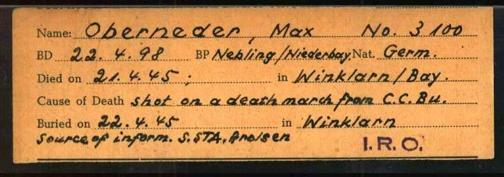 Name: Oberneder, Max No. 3100
BD 22.4.98 BP Nebling/Niederbay. Nat. Germ.
Died on 21.4.45; in Winklarn/Bay.
Cause of Death shot on a death march from C.C. Bu.
Buried on 22.4.45 in Winklarn
Source of inform. S.STA. Arolsen I.R.O.